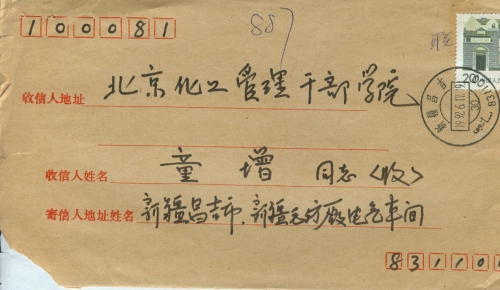 100081
887
收信人地址 北京化工管理干部学院
收信人姓名 童增 同志(收)
寄信人地址姓名 新疆昌吉市、新疆毛纺厂电气车间
831100